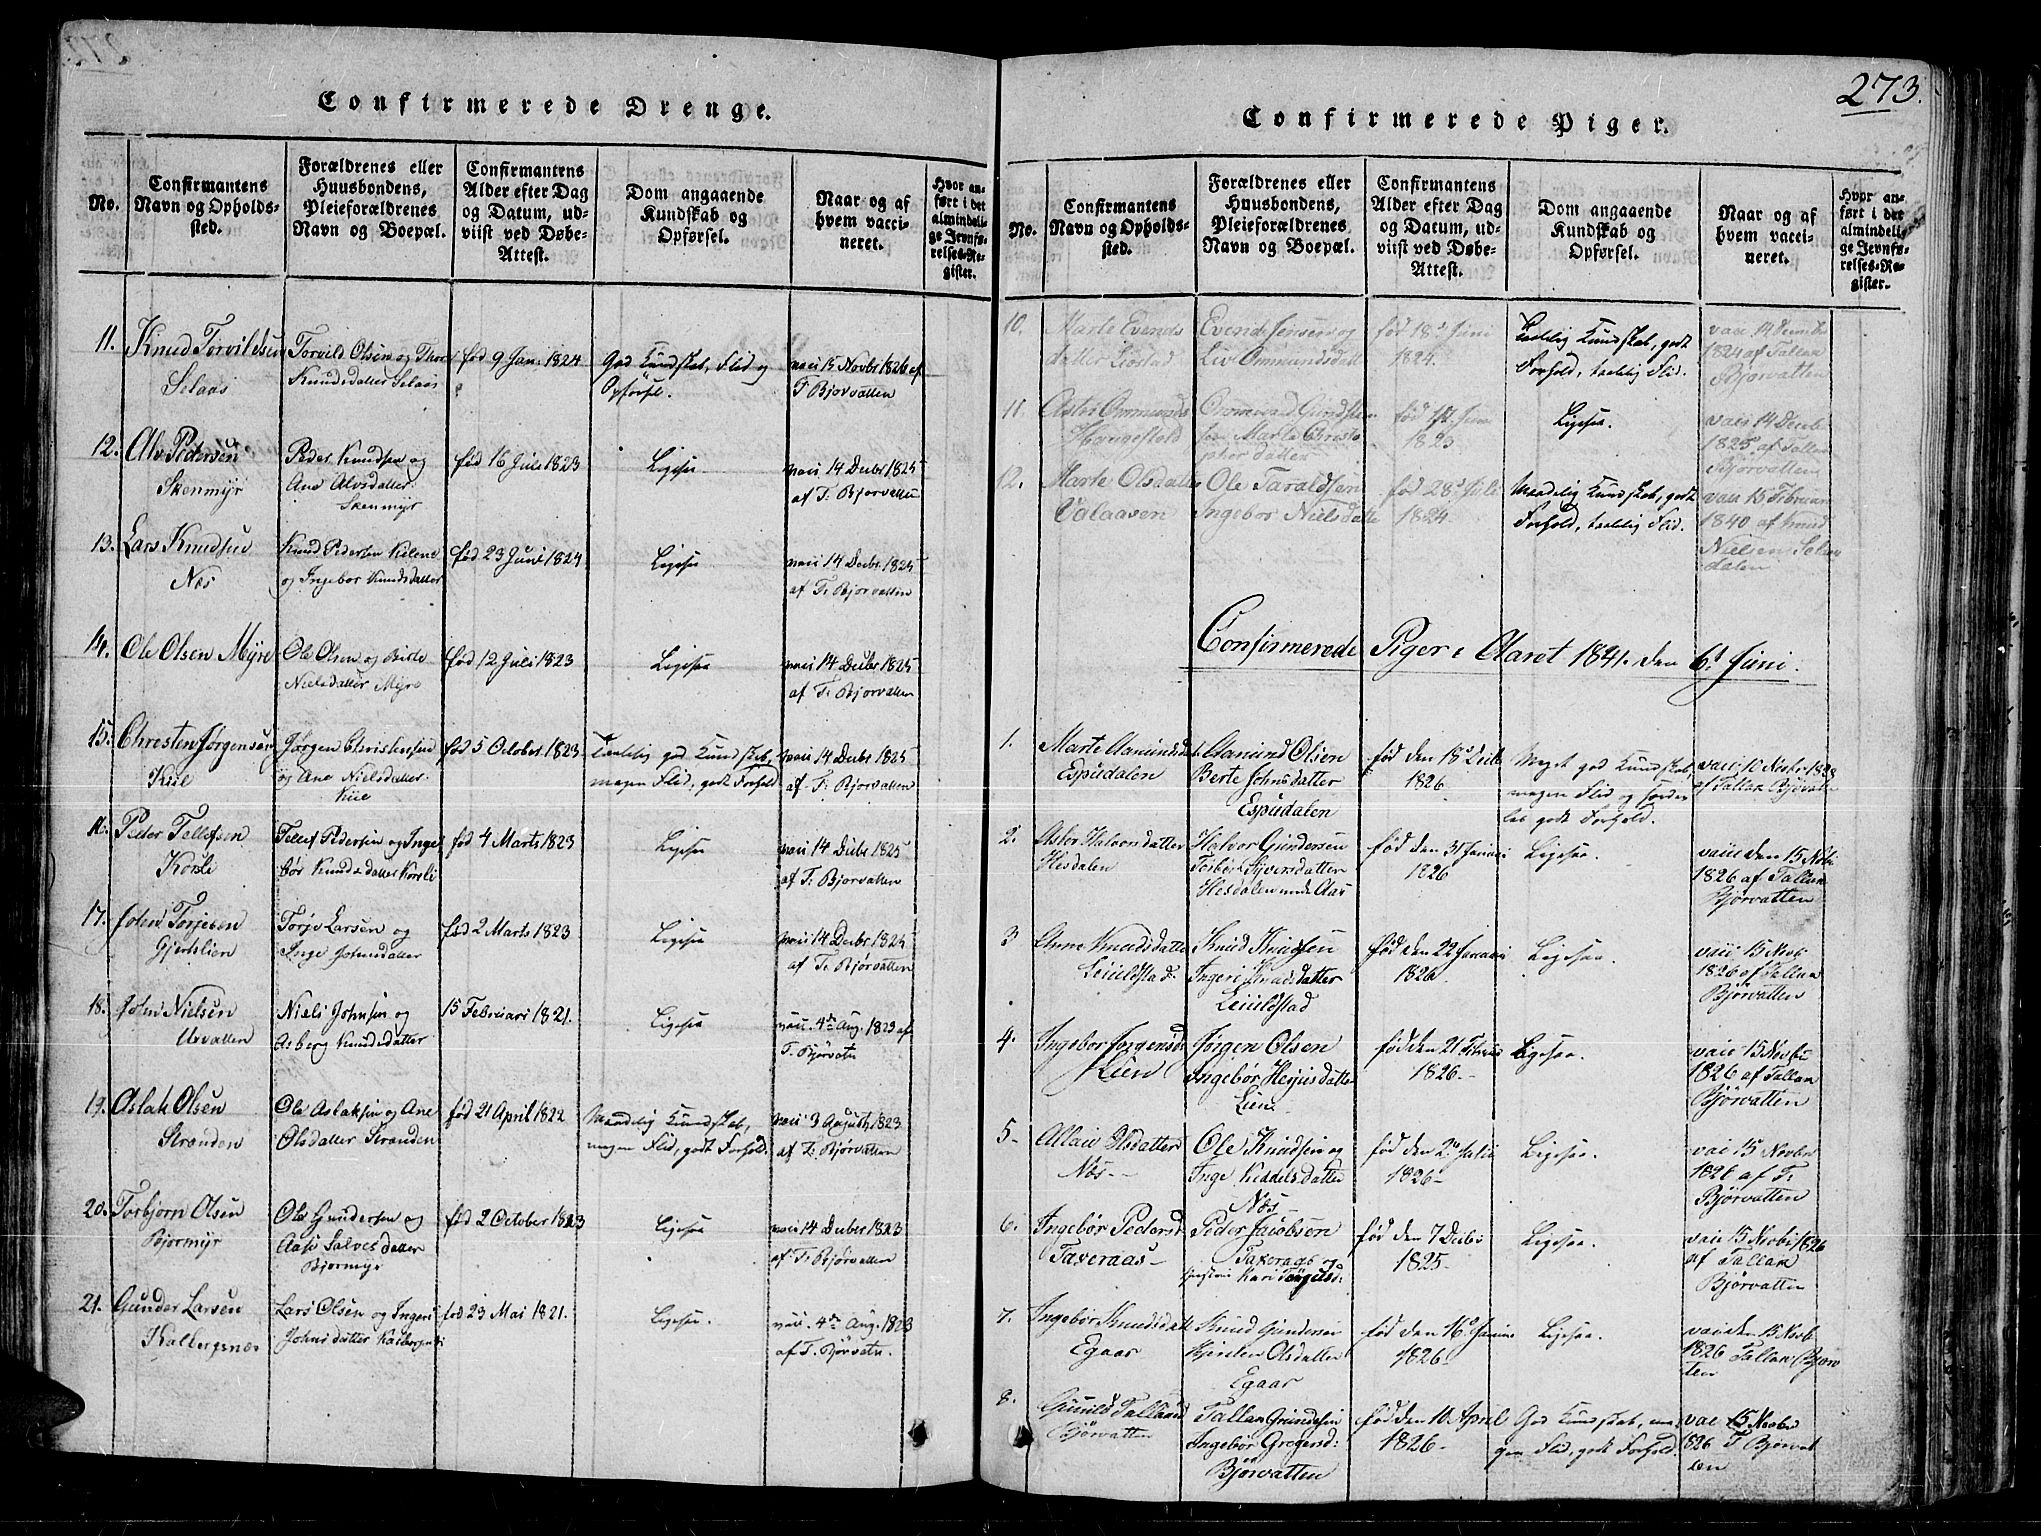 273.
Confirmerede Drenge.
No.
Confirmantens
Navn og Opholds-
sted.
Forældrenes eller
Huusbondens,
Pleieforældrenes
Navn og Boepæl.
Confirmantens
Alder efter Dag
og Datum, ud-
viist ved Døbe-
Attest.
Dom angaaende
Kundskab og
Opførsel.
Naar og af
hvem vacci-
neret.
Hvor an-
ført i det
almindeli-
ge Jevnfø-
relses-Re-
gister.
11. Knud Torvildsen
Selaas
Torvild Olsen og Thor
Knudsdatter Selaas
fød 9 Jan. 1824
God Kundskab, Flid og
Opførsel.
vaci 15 Novbr 1826 af
T Bjorvatten
12. Alv Pedersen
Skenmyr
Peder Knudsen og
Ane Alvsdatter
Skenmyr
fød 16 Juli 1823
Ligesaa
vaci 14 Decbr 1825
af T. Bjorvatten
13. Lars Knudsen
Næs
Knud Pedersen Kilene
og Ingebor Knudsdatter
fød 23 Juni 1824
Ligesaa
vaci 14 Decbr 1825
af T. Bjorvatten
14. Ole Olsen Myre
Ole Olsen og Birte
Nielsdatter Myre
fød 12 Juli 1823
Ligesaa
vaci 14 Decbr 1825
af T. Bjorvatten
15. Christen Jørgensen
Kiil
Jørgen Christensen
og Ane Nielsdatter
Kiie
fød 5 October 1823
Taalelig god Kundskab,
megen Flid, godt Forhold
vaci 14 Decbr 1825
af T. Bjorvatten
16. Peder Tellefsen
Korsli
Tellef Pedersen og Inge
bør Knudsdatter Korsli
fød 4 Marts 1823
Ligesaa
vaci 14 Decbr 1825
af T. Bjorvatten
17. John Torjesen
Gjertslien
Torje Larsen og
Inge Johnsdatter
fød 2 Marts 1823
Ligesaa
vaci 14 Decbr 1825
af T. Bjørvatten
18. John Nielsen
Urvatten
Niels Johnsen og
Asberg Knudsdatter
15 Februari 1821.
Ligesaa
vaci. 4de Aug. 1823 af
T. Bjørvatn
19. Aslak Olsen
Stranden
Ole Aslaksen og Ane
Olsdatter Stranden
fød 21 April 1822
Maadelig Kundskab,
megen Flid, godt Forhold.
vaci 3 Augusti 1823
af T. Bjørvatten
20. Torbjorn Olsen
Bjormyr
Ole Gundersen og
Aase Salvesdatter
Bjormyr
fød 2 October 1823
Ligesaa
vaci 14 Decber 1823
af T. Bjørvatten
21. Gunder Larsen
Kalbergsnæs
Lars Olsen og Ingeri
Johnsdatter
fød 23 Mai 1821.
Ligesaa.
vaci. 4de Aug. 1823
af T. Bjørvatn.
Confirmerede Piger.
No.
Confirmantens
Navn og Opholds-
sted.
Forældrenes eller
Huusbondens,
Pleieforældrenes
Navn og Boepæl.
Confirmantens
Alder efter Dag
og Datum, ud-
viist ved Døbe-
Attest.
Dom angaaende
Kundskab og
Opførsel.
Naar og af
hvem vacci-
neret.
Hvor an-
ført i det
almindelig-
ge Jevnfø-
relses-Re-
gister.
10. Marte Evends
datter Liostad
Evend Jensen og
Liv Ommundsdatt
fød 18d Juni
1824.
Taalelig Kundskab, godt
Forhold, taalelig Flid.
1824 af Tallak
Bjørvatten
11. Aslov Ommunds
Haugestold
Ommund Gundersen
Marte Christo
pher datter
1823
Ligesaa.
vaci 14 Decbr
1825 af Tallak
Bjørvatten
12. Marte Olsdatter
Valaasen
Ole Taraldsen
Ingebor Nielsdatte
fød 28d Juli
1824.
Maadelig Kundskab, godt
Forhold, taalelig Flid.
vaci 15 Februari
1840 af Knud
Nielsen
dalen
Confirmerede Piger i Aaret 1841. den 6d Juni.
1. Marte Aamundsdat
Espedalen
Aamund Olsen
Berte Johnsdatter
Espedalen
fød den 18d
1826
Meget god Kundskab,
megen Flid og
godt Forhold.
vaci 10 Novbr 1828
af Tallak Bjørvatten
2. Aslov Halvorsdatter
Hesdalen
Halvor Gundersen
Torber Syversdatter
Hesdalen
fød den 31 Januari
1826
Ligesaa.
vaci den 15 Novb
1826 af Tallak
Bjørvatten
3 Anne Knudsdatter
Leiuldstad
Knud Knudsen
Ingeri
Leiuldstad
fød den 22 Januari
1826
Ligesaa.
vaci 15 Novb
1826 af Tallak
Bjørvatten
4. Ingebor Jorgensd:
Lien
Jørgen Olsen
Ingebør
Lien
fød den 21 Februar
1826.-
Ligesaa.
vaci 15 Novbr
1826 af Tallak
Bjørvatten
5- Olsdatter
Næs-
Ole Knudsen og
Inge Keddelsdatter
Næs
fød den 2
1826-
Ligesaa.
vaci 15 Novbr
1826 af T.
Bjørvatten
6. Ingebør Pedersd
Taxeraas-
Peder Jacobsen
Taxeraas og
Kari
fød den 7 Decbr
1825-
Ligesaa.
vaci 15 Novbr 1826
af Tallak
Bjørvatten
7. Ingebor Knudsdatt
Egaar
Knud Gundersen
Kjersten Olsdatter
Egaar
fød den 16d Januar
1826-
Ligesaa.
vaci den 15 Novb
1826 Tallak Bjørv
ten
8. Gunild Tallaksd
Bjørvatten
Tallak Gundersen
Ingebør Gregersd:
Bjørvatten
fød den 10 April
1826-
God Kundskab, me
gen Flid, godt Forhold.
vaci 15 Novbr
1826 T Bjørvat
ten